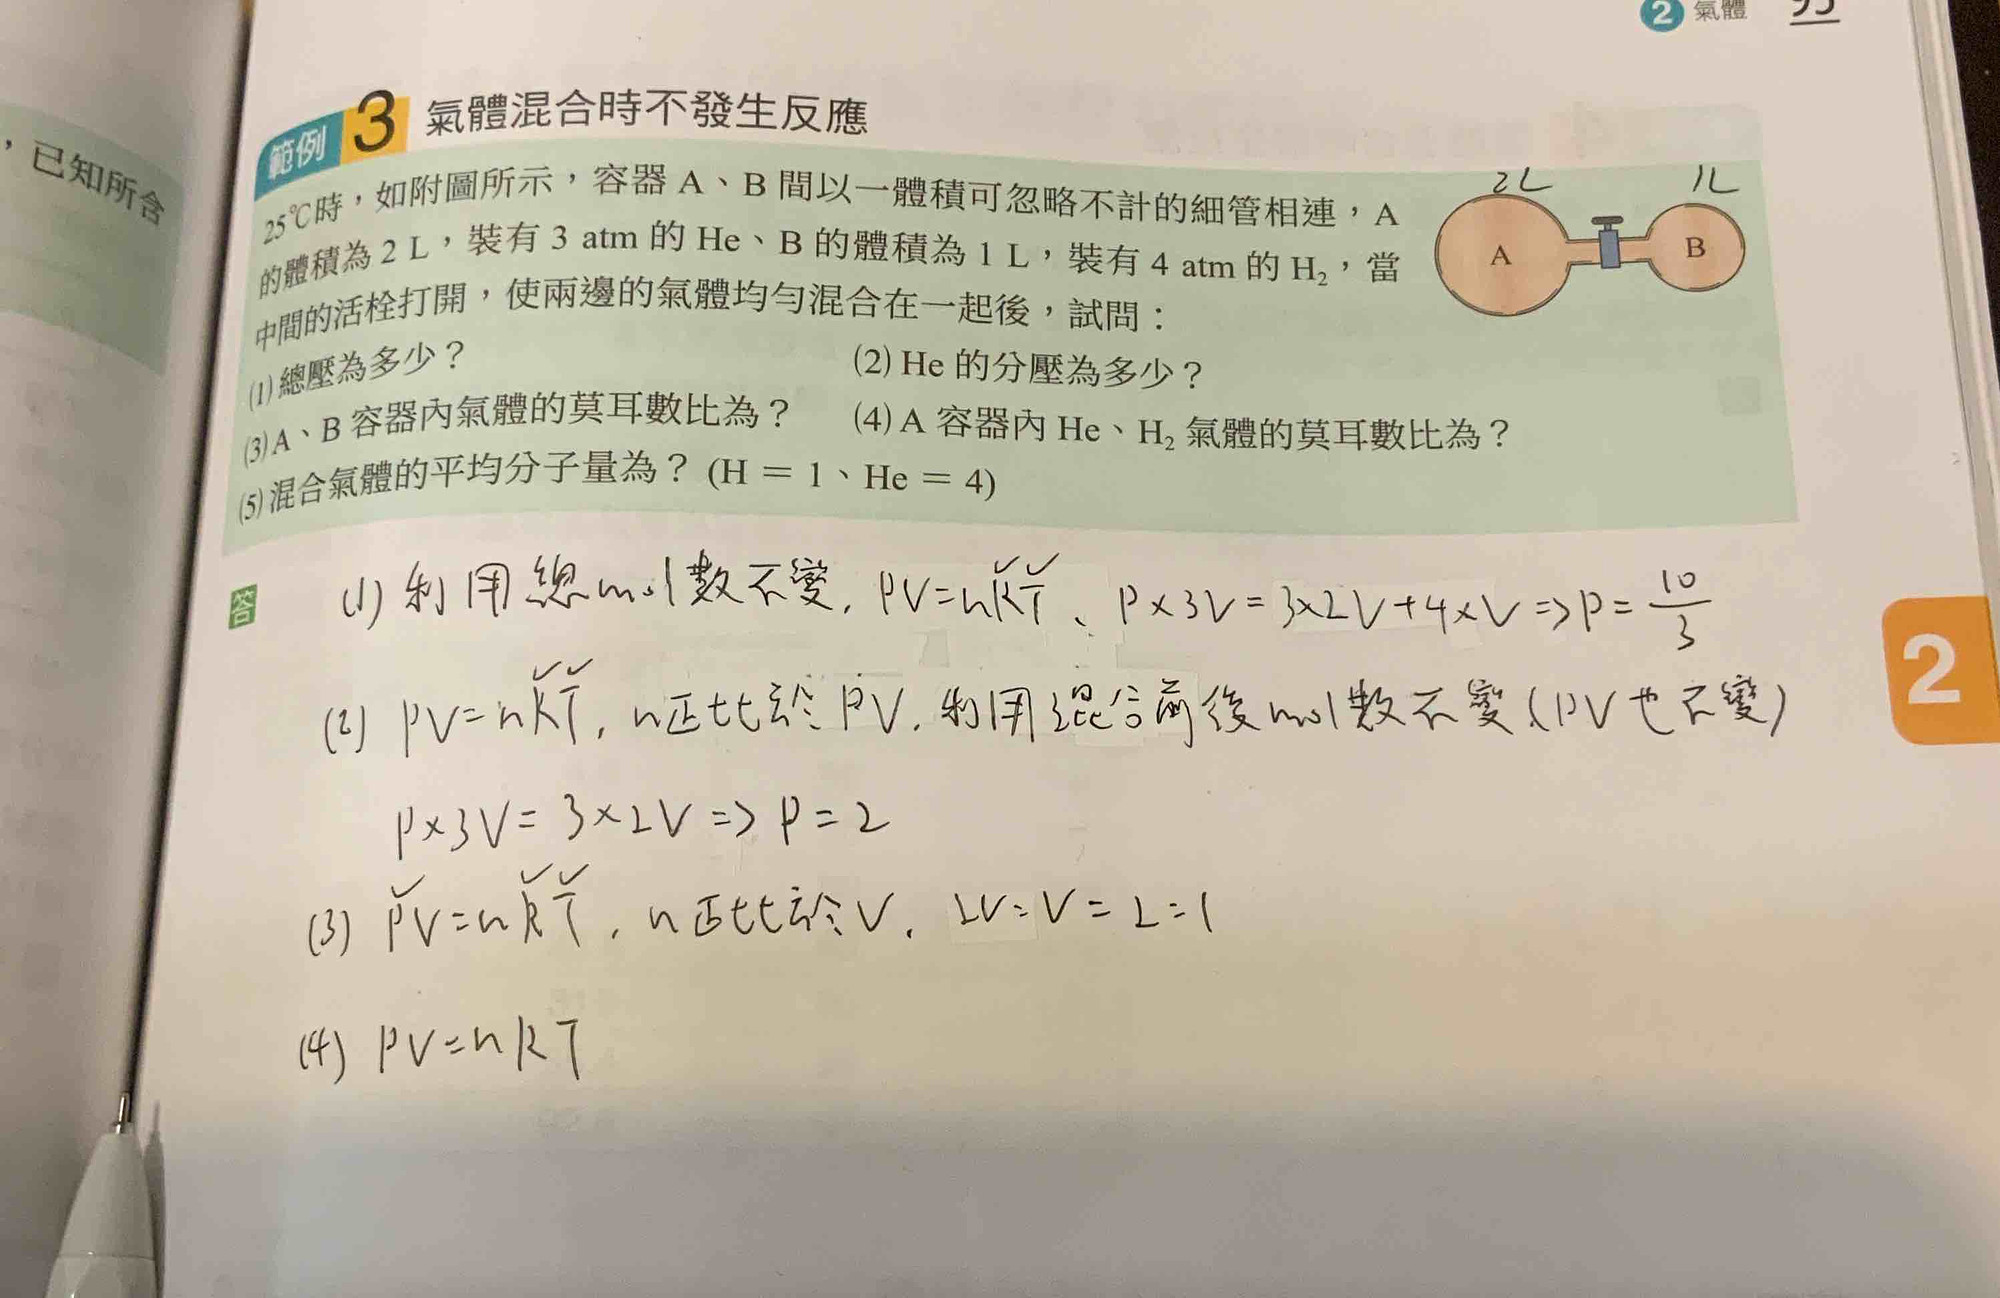 2 氣體 95
，已知所含
範例 3 氣體混合時不發生反應
25℃時，如附圖所示，容器 A、B 間以一體積可忽略不計的細管相連，A
的體積為 2 L，裝有 3 atm 的 He、B 的體積為 1 L，裝有 4 atm 的 H₂，當
中間的活栓打開，使兩邊的氣體均勻混合在一起後，試問：
2L 1L
A B
(1) 總壓為多少？ (2) He 的分壓為多少？
(3) A、B 容器內氣體的莫耳數比為？ (4) A 容器內 He、H₂ 氣體的莫耳數比為？
(5) 混合氣體的平均分子量為？ (H = 1、He = 4)
答 (1) 利用總mol數不變，PV=nRT、P×3V=3×2V+4×V=>P=10/3
(2) PV=nRT，n正比於PV，利用混合前後mol數不變(PV也不變)
P×3V=3×2V=>P=2
(3) PV=nRT，n正比於V，2V:V=2:1
(4) PV=nRT
2